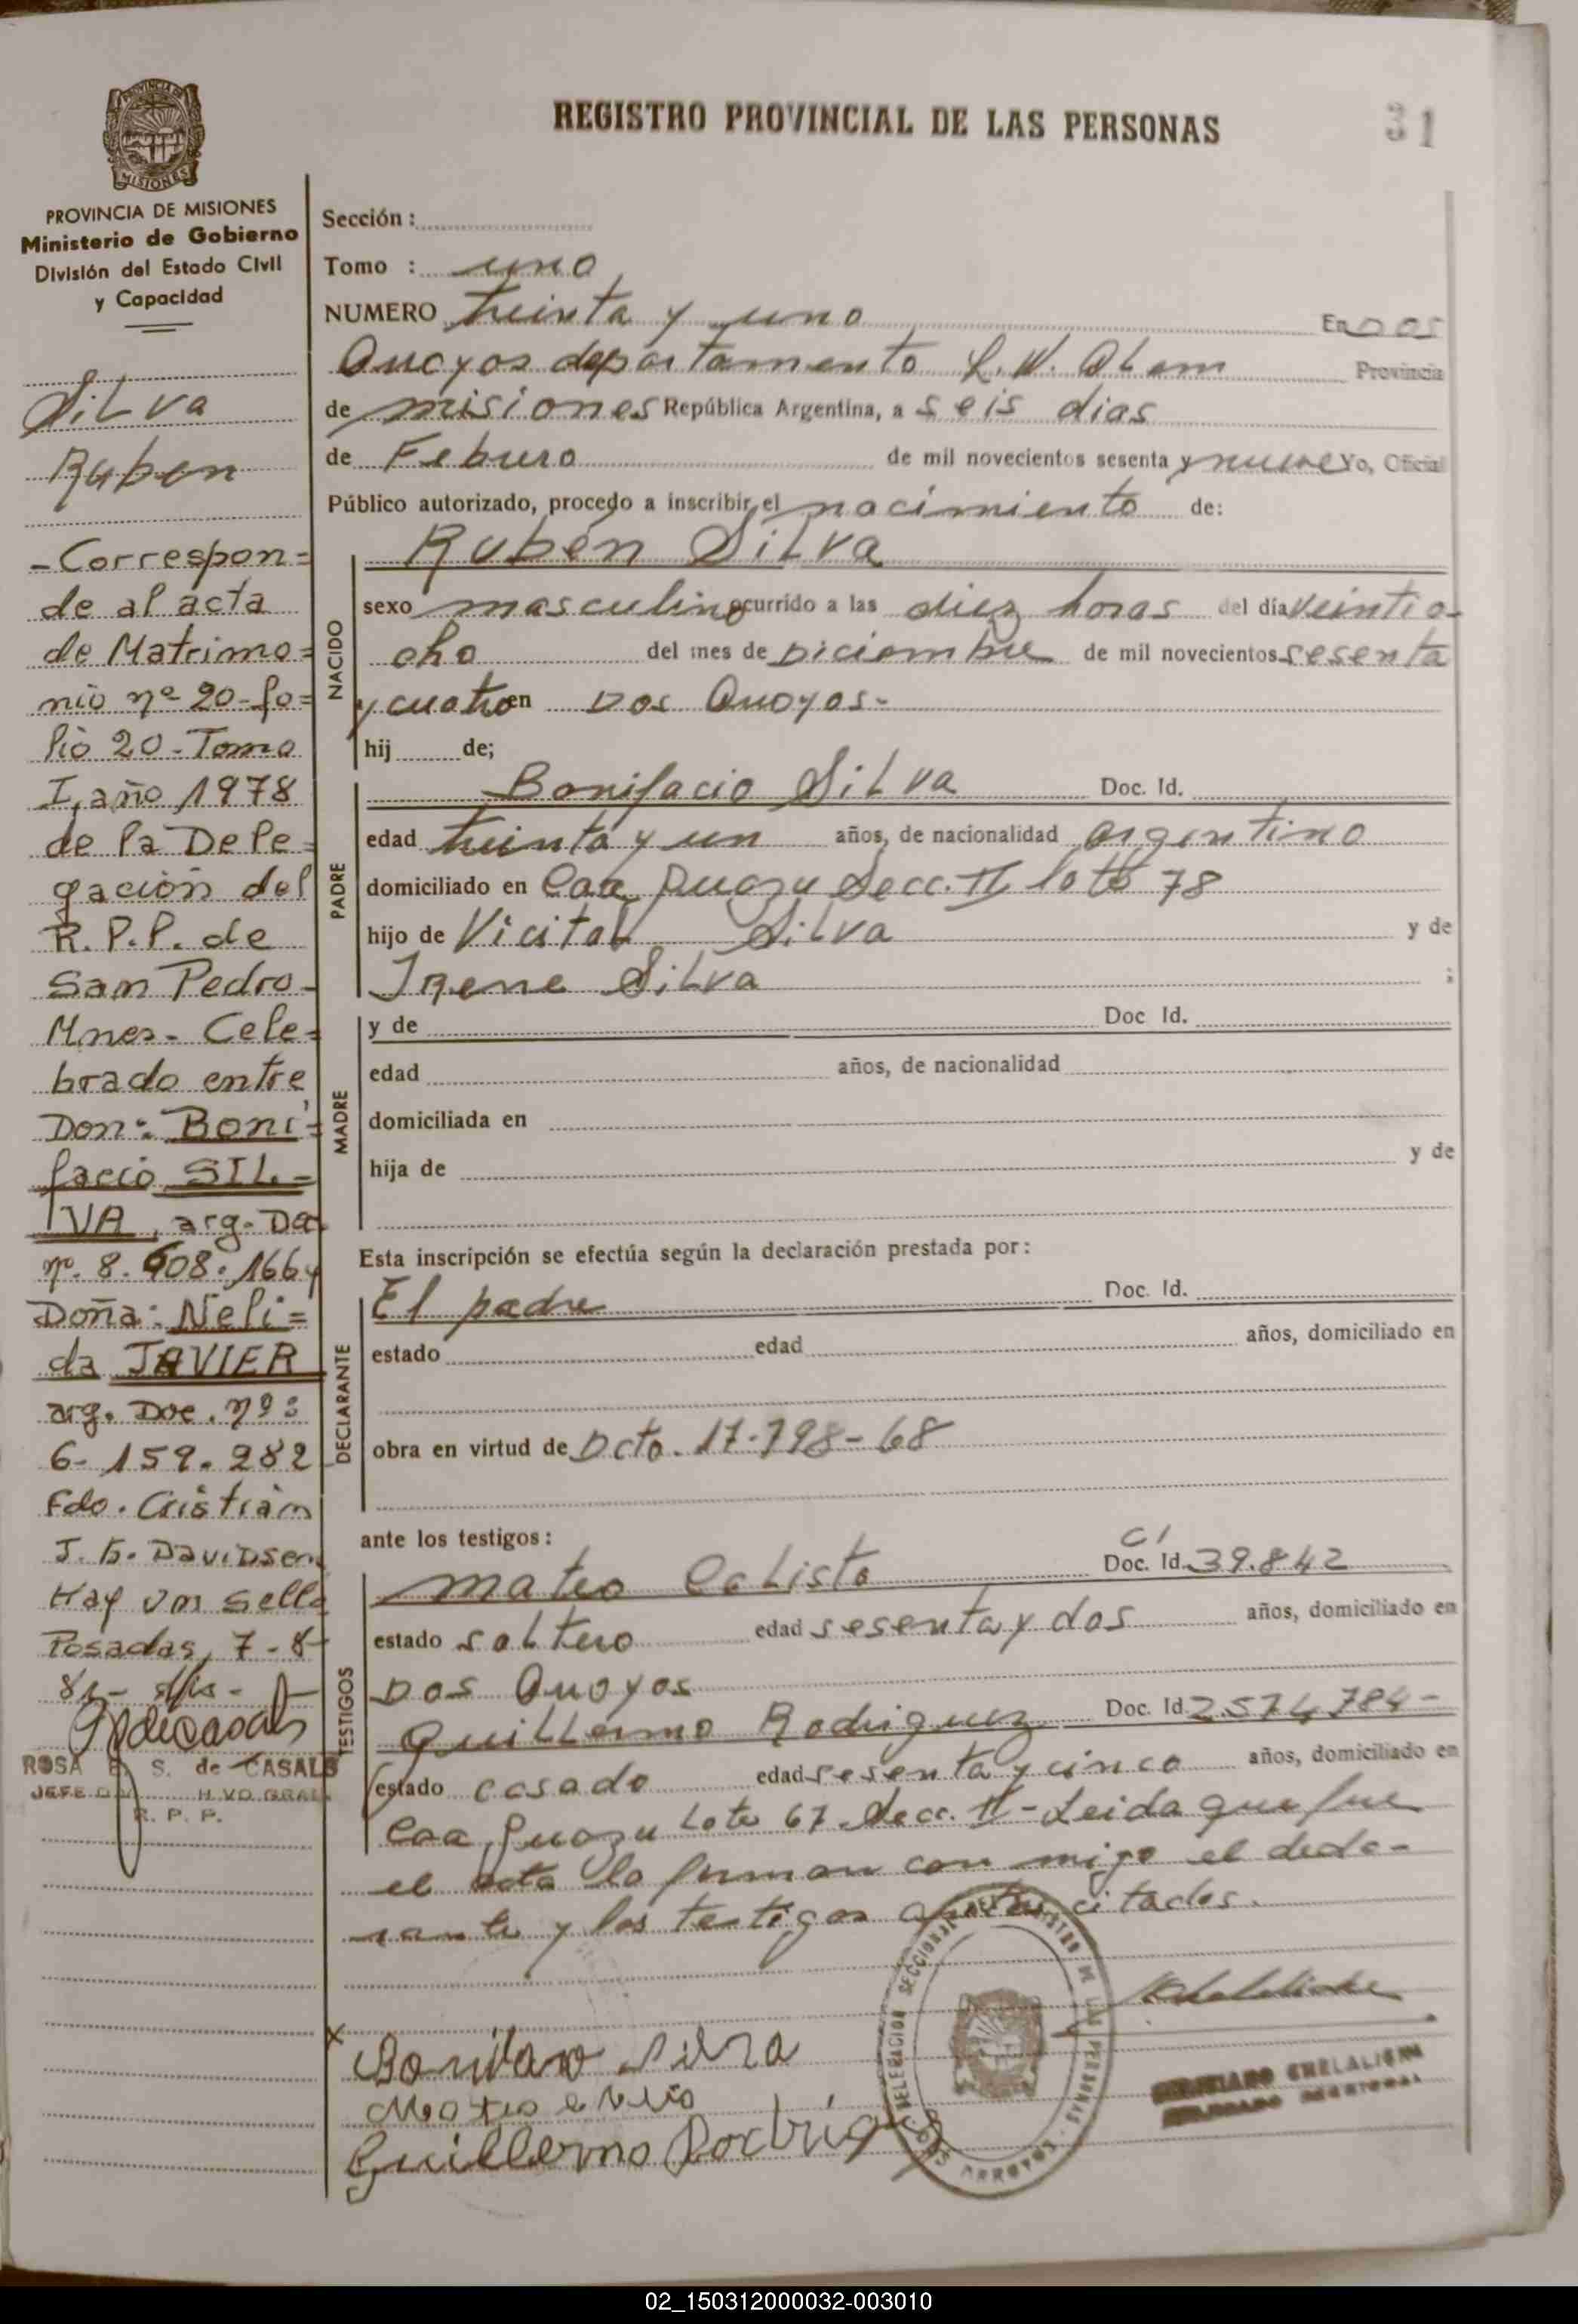 REGISTRO PROVINCIAL DE LAS PERSONAS
31
MISIONES
PROVINCIA DE MISIONES
Ministerio de Gobierno
División del Estado Civil
y Capacidad
Silva
Ruben
- Correspon=
de al acta
de Matrimo=
nio nº 20-fo=
lio 20-Tomo
I, año 1978
de la Dele=
gación del
R.P.P. de
San Pedro-
Mnes- Cele=
brado entre
Don: Boni=
facio SIL-
VA, arg. Doc
nº. 8.608.166 y
Doña: Neli=
da JAVIER
arg. Doc. nº:
6-159.282
Fdo. Cristian
J. B. Davidsen
Hay un sello
Posadas, 7-8-
81-
ROSA E. S. de CASALS
R. P. P.
Sección :
Tomo : uno
NUMERO treinta y uno En Dos
Arroyos departamento L. N. Alem Provincia
de misiones República Argentina, a seis dias
de Febrero de mil novecientos sesenta y nueve Yo, Oficial
Público autorizado, procedo a inscribir el nacimiento de:
Rubén Silva
NACIDO
sexo masculino ocurrido a las diez horas del día veintio-
cho del mes de Diciembre de mil novecientos sesenta
y cuatro en Dos Arroyos-
hij de;
PADRE
Bonifacio Silva Doc. Id.
edad treinta y un años, de nacionalidad argentino
domiciliado en Caa Guazu Secc. II lote 78
hijo de Vicital Silva y de
Irene Silva ;
MADRE
y de Doc Id.
edad años, de nacionalidad
domiciliada en
hija de y de
Esta inscripción se efectúa según la declaración prestada por:
DECLARANTE
El padre Doc. Id.
estado edad años, domiciliado en
obra en virtud de Dcto. 17.798-68
ante los testigos:
TESTIGOS
CI
mateo Calisto Doc. Id. 39.842
estado soltero edad sesenta y dos años, domiciliado en
Dos Arroyos
Guillermo Rodriguez Doc. Id 2.574.784-
estado casado edad sesenta y cinco años, domiciliado en
Caa Guazu Lote 67 Secc. II - Leida que fue
el acta la firman con migo el decla-
rante y los testigos antes citados.
x
Guillermo Rodrigu
DELEGACION SECCIONAL DEL REGISTRO DE LAS PERSONAS - DOS ARROYOS
02_150312000032-003010